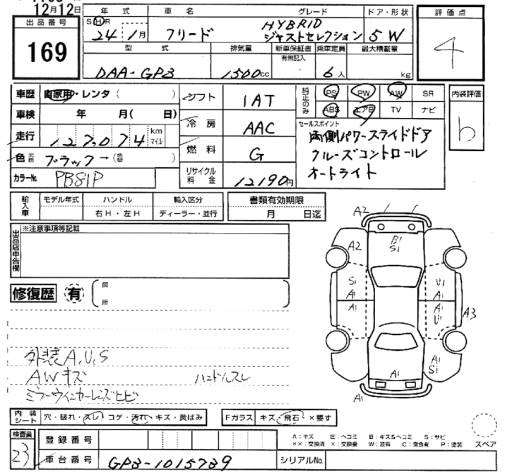 12月12日
出品番号
169
年式 車名 グレード ドア・形状
S H 24年 1月 フリード HYBRID ジャストセレクション 5 W
型式 排気量 新車保証書 乗車定員 最大積載量
有側記入
DAA-GP3 1500cc 6人 kg
評価点
4
内装評価
b
車歴 自家用・レンタ ( )
車検 年 月 ( 日)
走行 127,074 km マイル
色 ブラック → ( )
カラーNo. PB81P
シフト 1AT
冷房 AAC
燃料 G
リサイクル料金 12190円
純正のみ PS PW AW SR
ABS エアB TV ナビ
セールスポイント
両側パワースライドドア
クルーズコントロール
オートライト
輸入車 モデル年式 ハンドル 輸入区分
右H・左H ディーラー・並行
書類有効期限
月 日迄
出品店申告欄 ※注意事項等記載
修復歴 有
外装A.U.S
AWキズ ハンドルスレ
ミラーウィンカーレンズヒビ
A2
B1
S1
A2
S1 U1
A1 A1
A1 A1
U1
A3
A1 A1
S1
A1
内装シート 穴・破れ・スレ・コゲ・汚れ・キズ・黄ばみ
Fガラス キズ・飛石・×要す
スペア
検査員 23
登録番号
車台番号 GP3-1015789
シリアルNo.
A:キズ E:ヘコミ B:キズ&ヘコミ S:サビ
××:交換済 X:交換要 W:補修 C:腐食 P:塗装